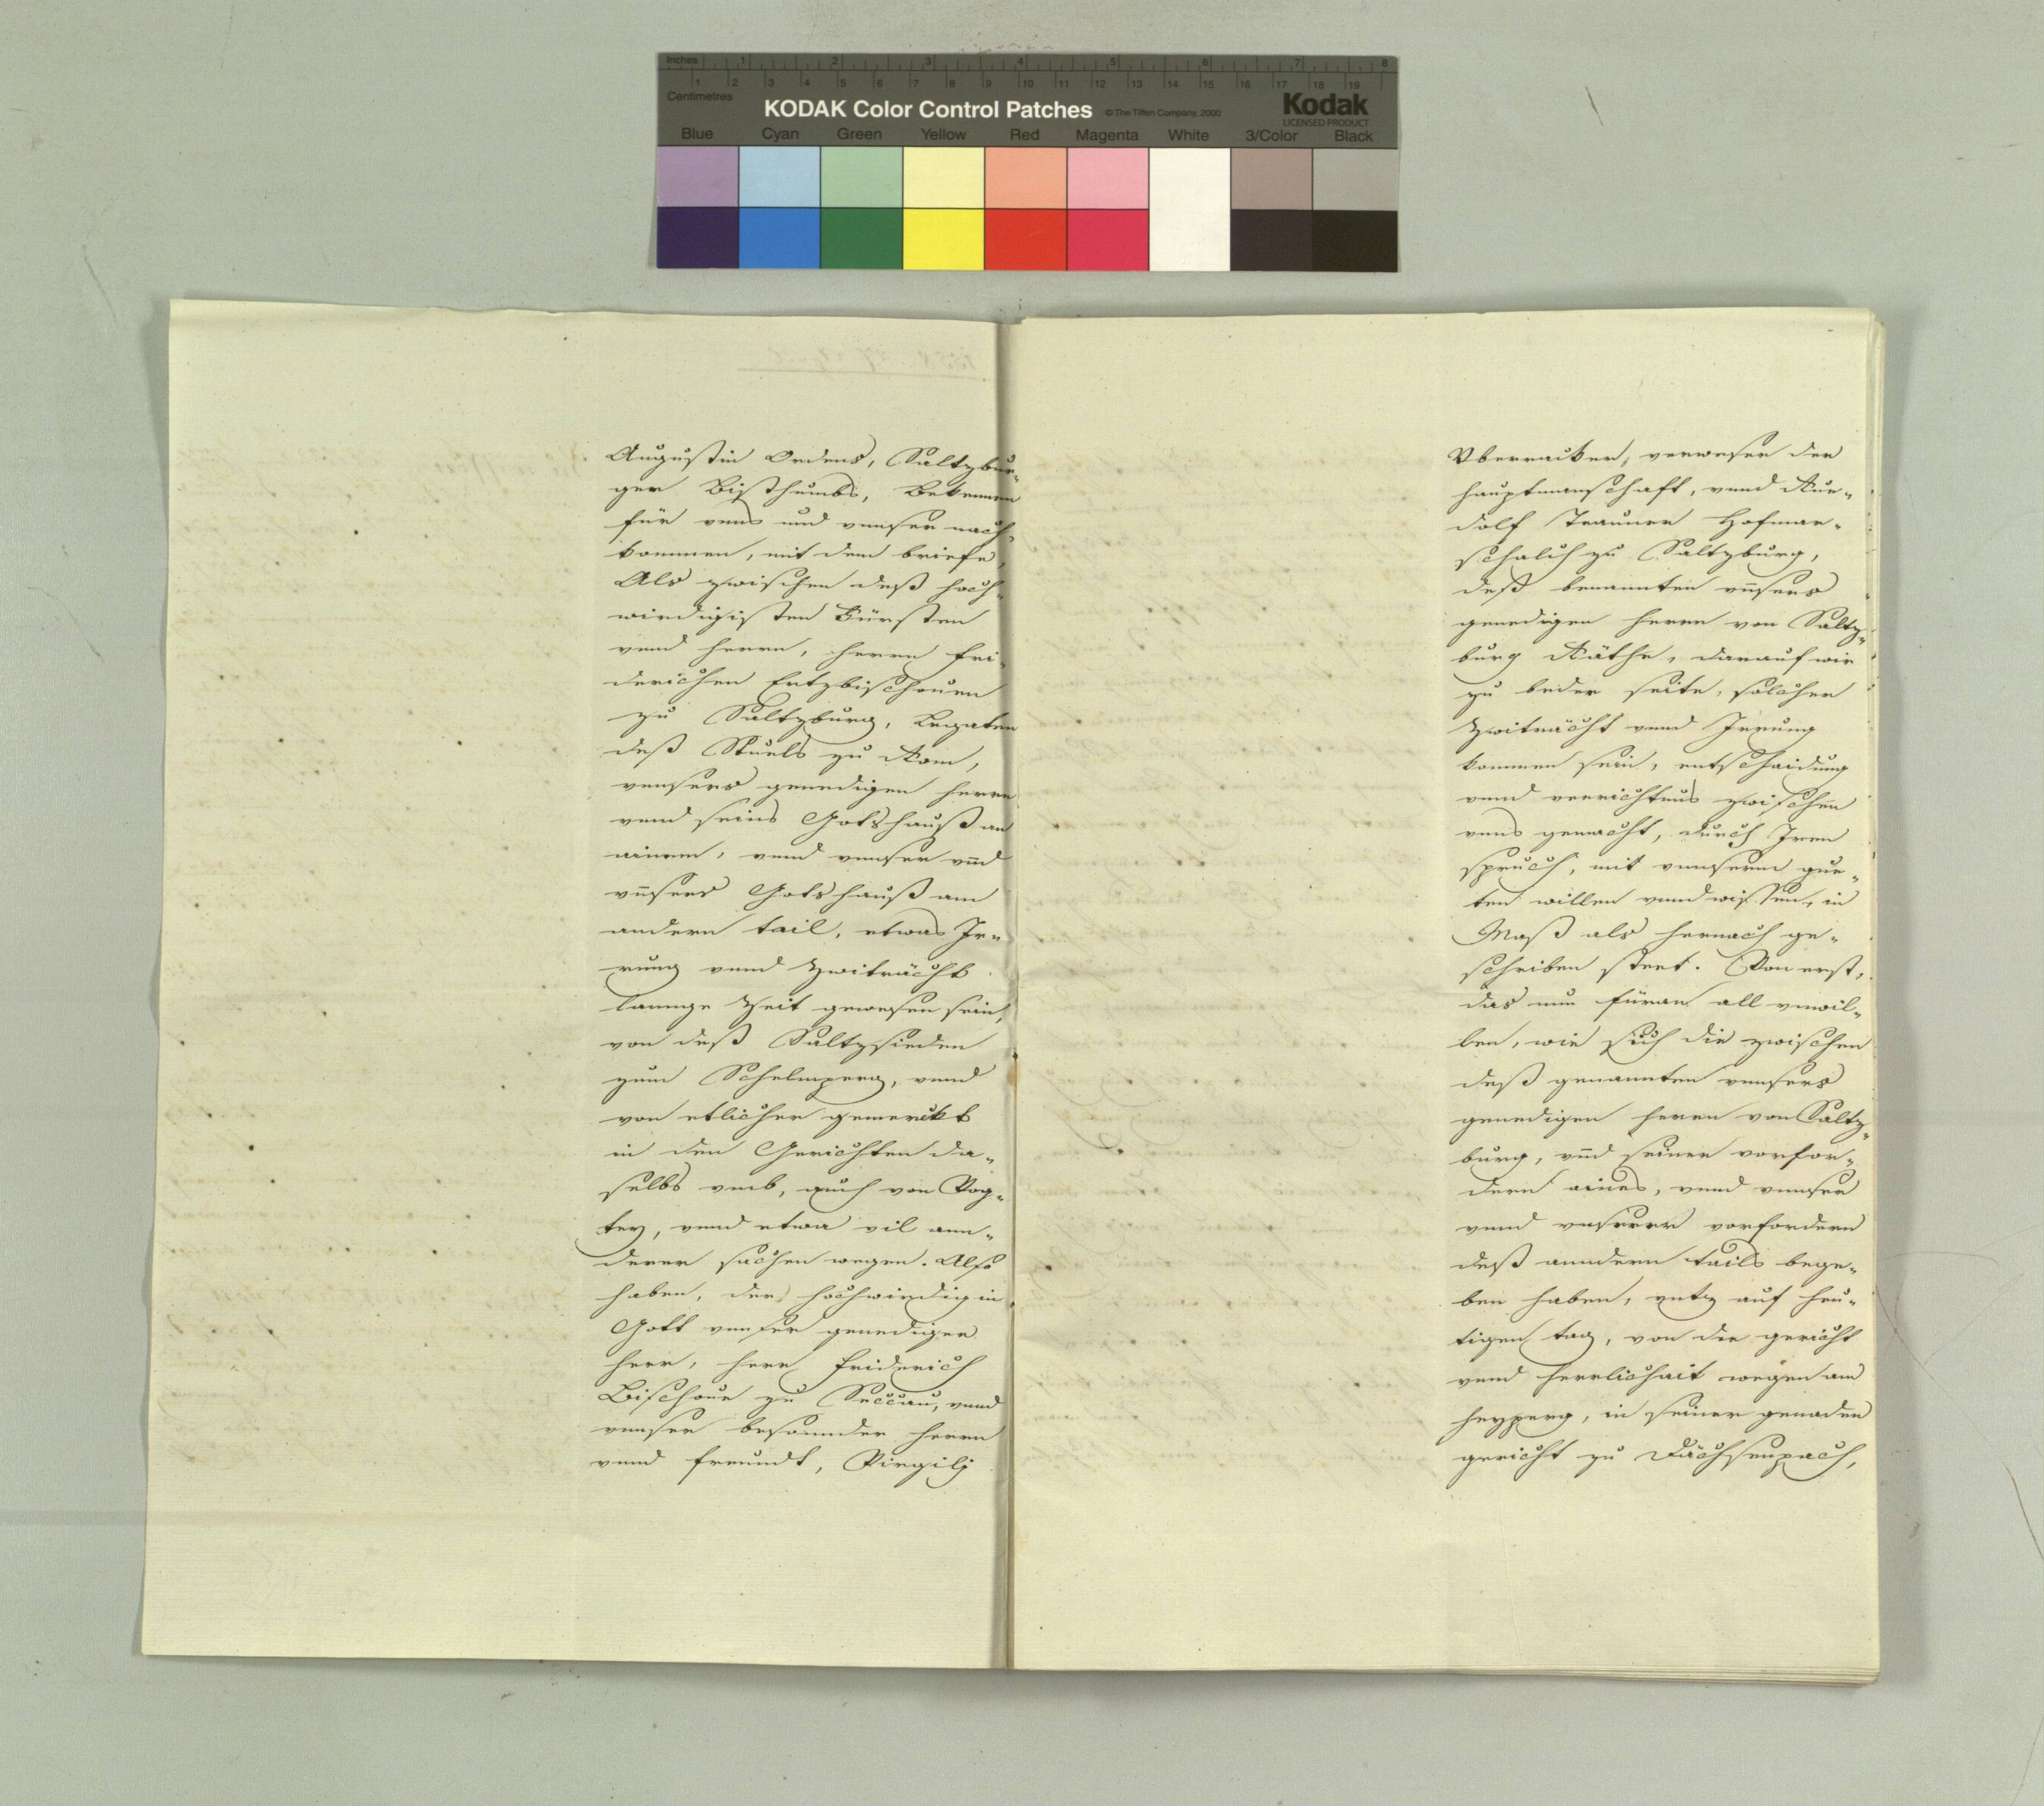 Inches 1 2 3 4 5 6 7 8
1 2 3 4 5 6 7 8 9 10 11 12 13 14 15 16 17 18 19
Centimetres
KODAK Color Control Patches © The Tiffen Company, 2000 Kodak
LICENSED PRODUCT
Blue Cyan Green Yellow Red Magenta White 3/Color Black
Augustin Ordens, Saltzbur-
ger Bisthumbs, Bekennen
für vnns und vnnser nach-
kommen, mit dem briefe,
Als zwischen deß hoch-
wirdigisten Fürsten
vnnd herrn, herrn Fri-
derichen Ertzbischouen
zu Saltzburg, Legaten
deß Stuels zu Rom,
vnnsers genedigen herrn
vnnd seins Gotshauß an
ainem, vnnd vnnser vnd
vnsers Gotshauß am
andern tail, etwas Ir-
rung vnnd Zwiträcht
lannge Zeit gewesen sein,
von deß Saltzsieden
zum Schelmperg, vnnd
von etlicher gemerckt
in den Gerichten da-
selbs vmb, auch von Vog-
tey, vnnd etwa vil ann-
derer sachen wegen. Also
haben, der hochwirdig in
Gott vnnser genediger
herr, herr Friderich
Bischoue zu Seccau, vnnd
vnnser besonnder herrn
vnnd freundt, Virgilj
Vberracker, verweser der
hauptmanschaft, vnnd Rue-
dolf Trauner Hofmar-
schalch zu Saltzburg,
deß benannten vnsers
genedigen herrn von Saltz-
burg Räthe, darauf wir
zu beder seite, solcher
Zwiträcht vnnd Irrung
kommen sein, entschaidung
vnnd verrichtnus zwischen
vnns gemacht, durch Iren
spruch, mit vnnserm gue-
ten willen vnnd wissen, in
Maß als hernach ge-
schriben steet. Von erst,
das nun füran all vnwil-
len, wie sich die zwischen
deß genannten vnnsers
genedigen herrn von Saltz-
burg, vnd seiner vorfor-
dern aines, vnnd vnnser
vnnd vnserer vorfordern
deß anndern tails bege-
ben haben, vntz auf heu-
tigen tag, von der gericht
vnnd herrlichait wegen am
heyperg, in seiner genaden
gericht zu Dächsenpach,